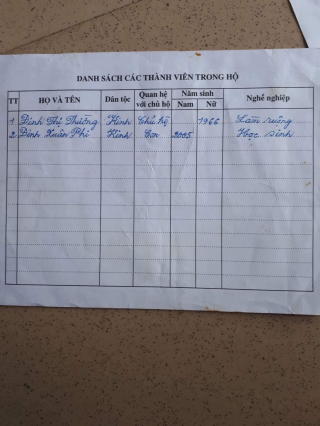 DANH SÁCH CÁC THÀNH VIÊN TRONG HỘ
TT HỌ VÀ TÊN Dân tộc Quan hệ với chủ hộ Năm sinh Nam Nữ Nghề nghiệp
1 Đinh Thị Thường Kinh Chủ hộ 1966 Làm ruộng
2 Đinh Xuân Phi Kinh Con 2005 Học sinh